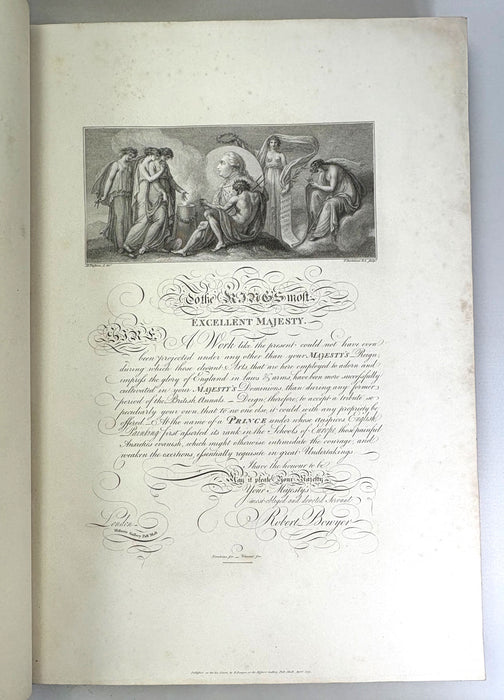 To the KING'S most
EXCELLENT MAJESTY.
SIRE,
A Work like the present could not have even
been projected under any other than your MAJESTY'S Reign,
during which those elegant Arts, that are here employed to adorn and
impress the glory of England in laws & arms, have been more successfully
cultivated in your MAJESTY'S Dominions, than during any former
period of the British Annals. Deign, therefore, to accept a tribute so
peculiarly your own, that to no one else, it could with any propriety be
offered. At the name of a PRINCE under whose auspices English
Painting first asserted its rank in the Schools of Europe, those painful
Anxieties vanish, which might otherwise intimidate the courage, and
weaken the exertions, essentially requisite in great Undertakings.
I have the honour to be
May it please Your Majesty
Your Majesty's
most obliged and devoted Servant
London
Historic Gallery Pall Mall
Robert Bowyer